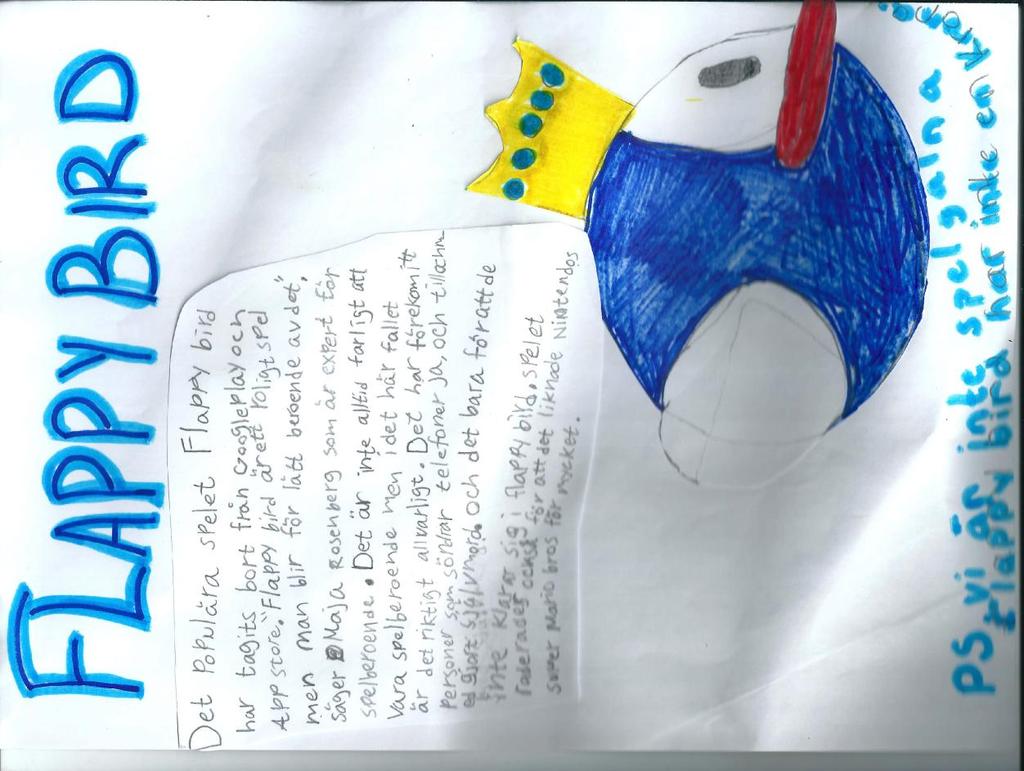 FLAPPY BIRD
Det Populära spelet Flappy bird
har tagits bort från Google play och
App store. "Flappy bird är ett roligt spel
men man blir för lätt beroende av det",
säger Maja Rosenberg som är expert för
spelberoende. Det är inte alltid farligt att
vara spelberoende men i det här fallet
är det riktigt allvarligt. Det har förekomitt
personer som söndrar telefoner ja, och tillochm-
ed gjort självmord. Och det bara för att de
inte klarar sig i flappy bild. Spelet
raderades också för att det liknade NiNtendos
super Mario bros för mycket.
PS, vi är inte spelgalna
flappy bird har inke en